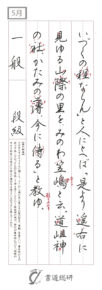 5月
いづくの程ならんと人にとへば、是より遥右に
見ゆる山際の里をみのわ笠嶋と云、道祖神
の社かたみの薄今に侍ると教ゆ
一般
段級
書道総研